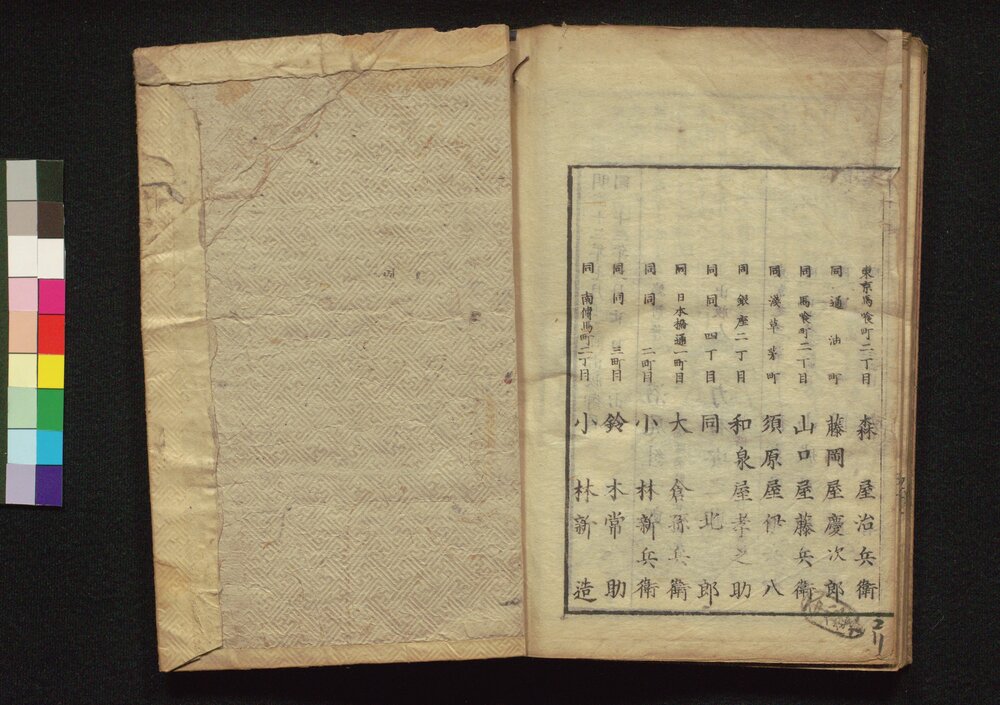 東京馬喰町二丁目 森屋治兵衛
同 通油町 藤岡屋慶次郎
同 馬喰町二丁目 山口屋藤兵衛
同 淺草茅町 須原屋伊八
同 銀座二丁目 和泉屋孝之助
同 同 四丁目 同 北郎
同 日本橋通一町目 大倉孫兵衛
同 同 二町目 小林新兵衛
同 同 三町目 鈴木常助
同 南傳馬町二丁目 小林新造